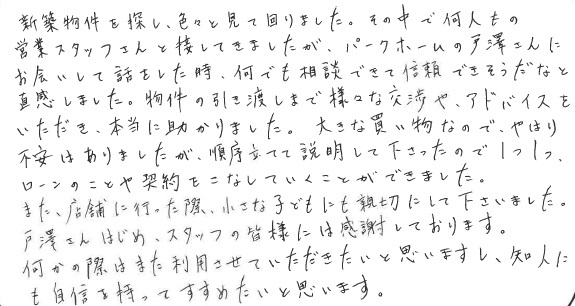 新築物件を探し、色々と見て回りました。その中で何人もの
営業スタッフさんと接してきましたが、パークホームの戸澤さんに
お会いして話をした時、何でも相談できて信頼できそうだなと
直感しました。物件の引き渡しまで様々な交渉や、アドバイスを
いただき、本当に助かりました。大きな買い物なので、やはり
不安はありましたが、順序立てて説明して下さったので1つ1つ、
ローンのことや契約をこなしていくことができました。
また、店舗に行った際、小さな子どもにも親切にして下さいました。
戸澤さんはじめ、スタッフの皆様には感謝しております。
何かの際はまた利用させていただきたいと思いますし、知人に
も自信を持ってすすめたいと思います。